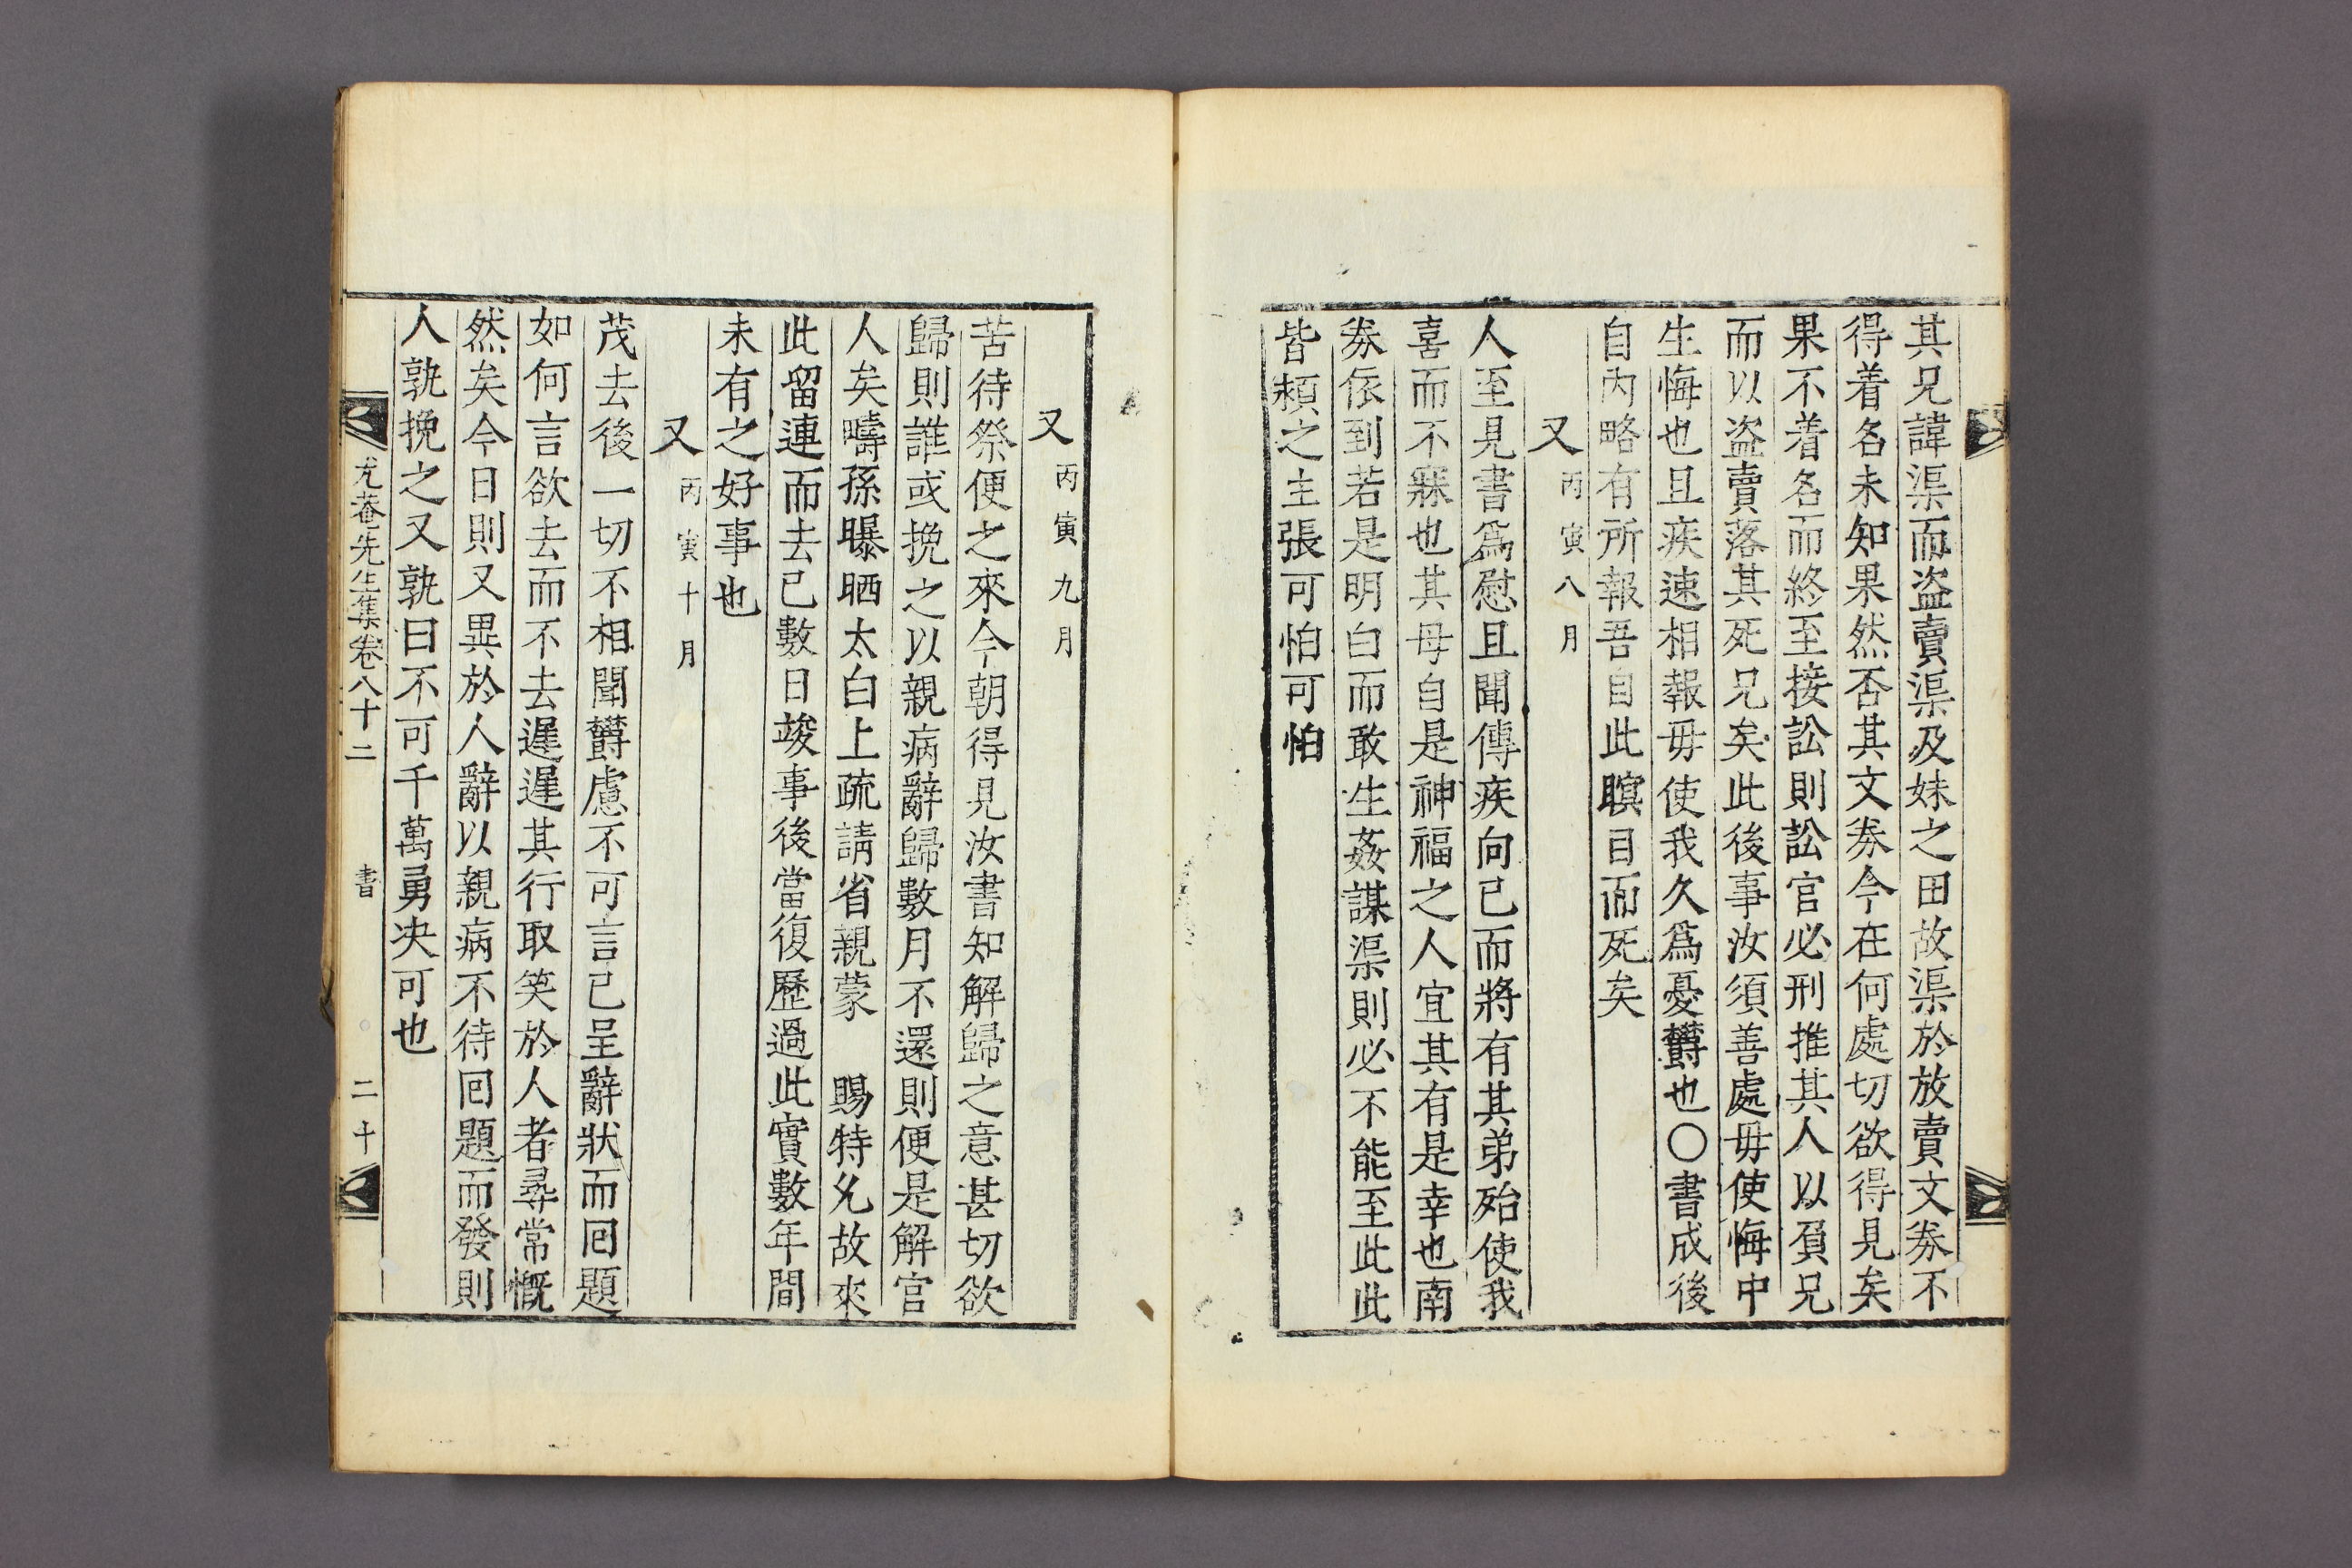 其兄諱渠而盗賣渠及妹之田故渠於放賣文券不
得着名未知果然否其文券今在何處切欲得見矣
果不着名而終至接訟則訟官必刑推其人以負兄
而以盗賣落其死兄矣此後事汝須善處毋使悔中
生悔也且疾速相報毋使我久爲憂欝也〇書成後
自內略有所報吾自此瞑目而死矣
又丙寅八月
人至見書爲慰且聞傳疾向已而將有其弟殆使我
喜而不寐也其母自是神福之人宜其有是幸也南
券依到若是明白而敢生姦謀渠則必不能至此此
皆頪之主張可怕可怕
又丙寅九月
苦待祭便之來今朝得見汝書知解歸之意甚切欲
歸則誰或挽之以親病辭歸數月不還則便是解官
人矣疇孫曝晒太白上疏請省親蒙　賜特允故來
此留連而去已數日竣事後當復歷過此實數年間
未有之好事也
又丙寅十月
茂去後一切不相聞欝慮不可言已呈辭狀而囘題
如何言欲去而不去遲遲其行取笑於人者尋常慨
然矣今日則又異於人辭以親病不待囘題而發則
人孰挽之又孰曰不可千萬勇决可也
尤菴先生集卷八十二　書　二十